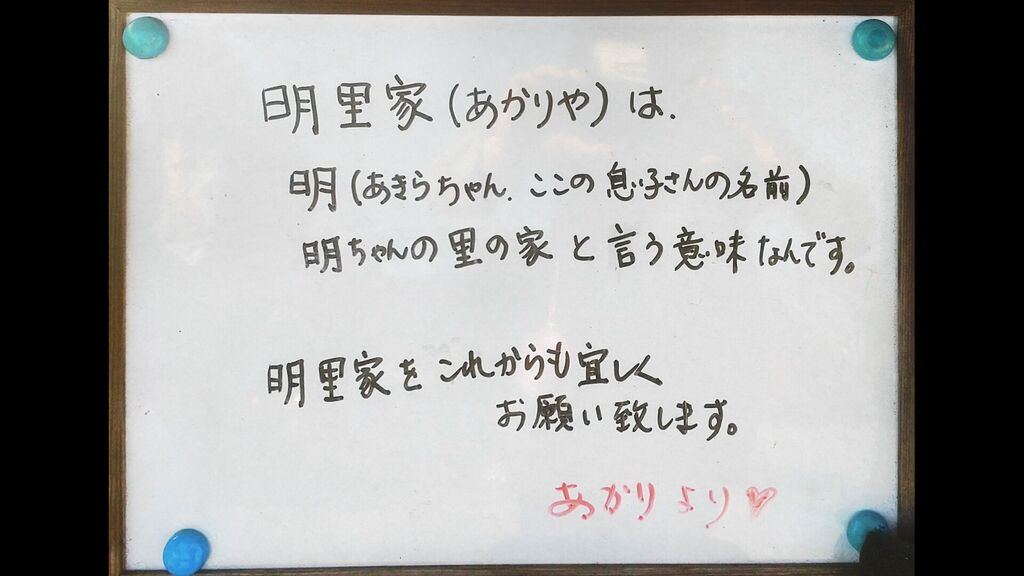 明里家(あかりや)は、
明(あきらちゃん、ここの息子さんの名前)
明ちゃんの里の家と言う意味なんです。
明里家をこれからも宜しく
お願い致します。
あかりより♡